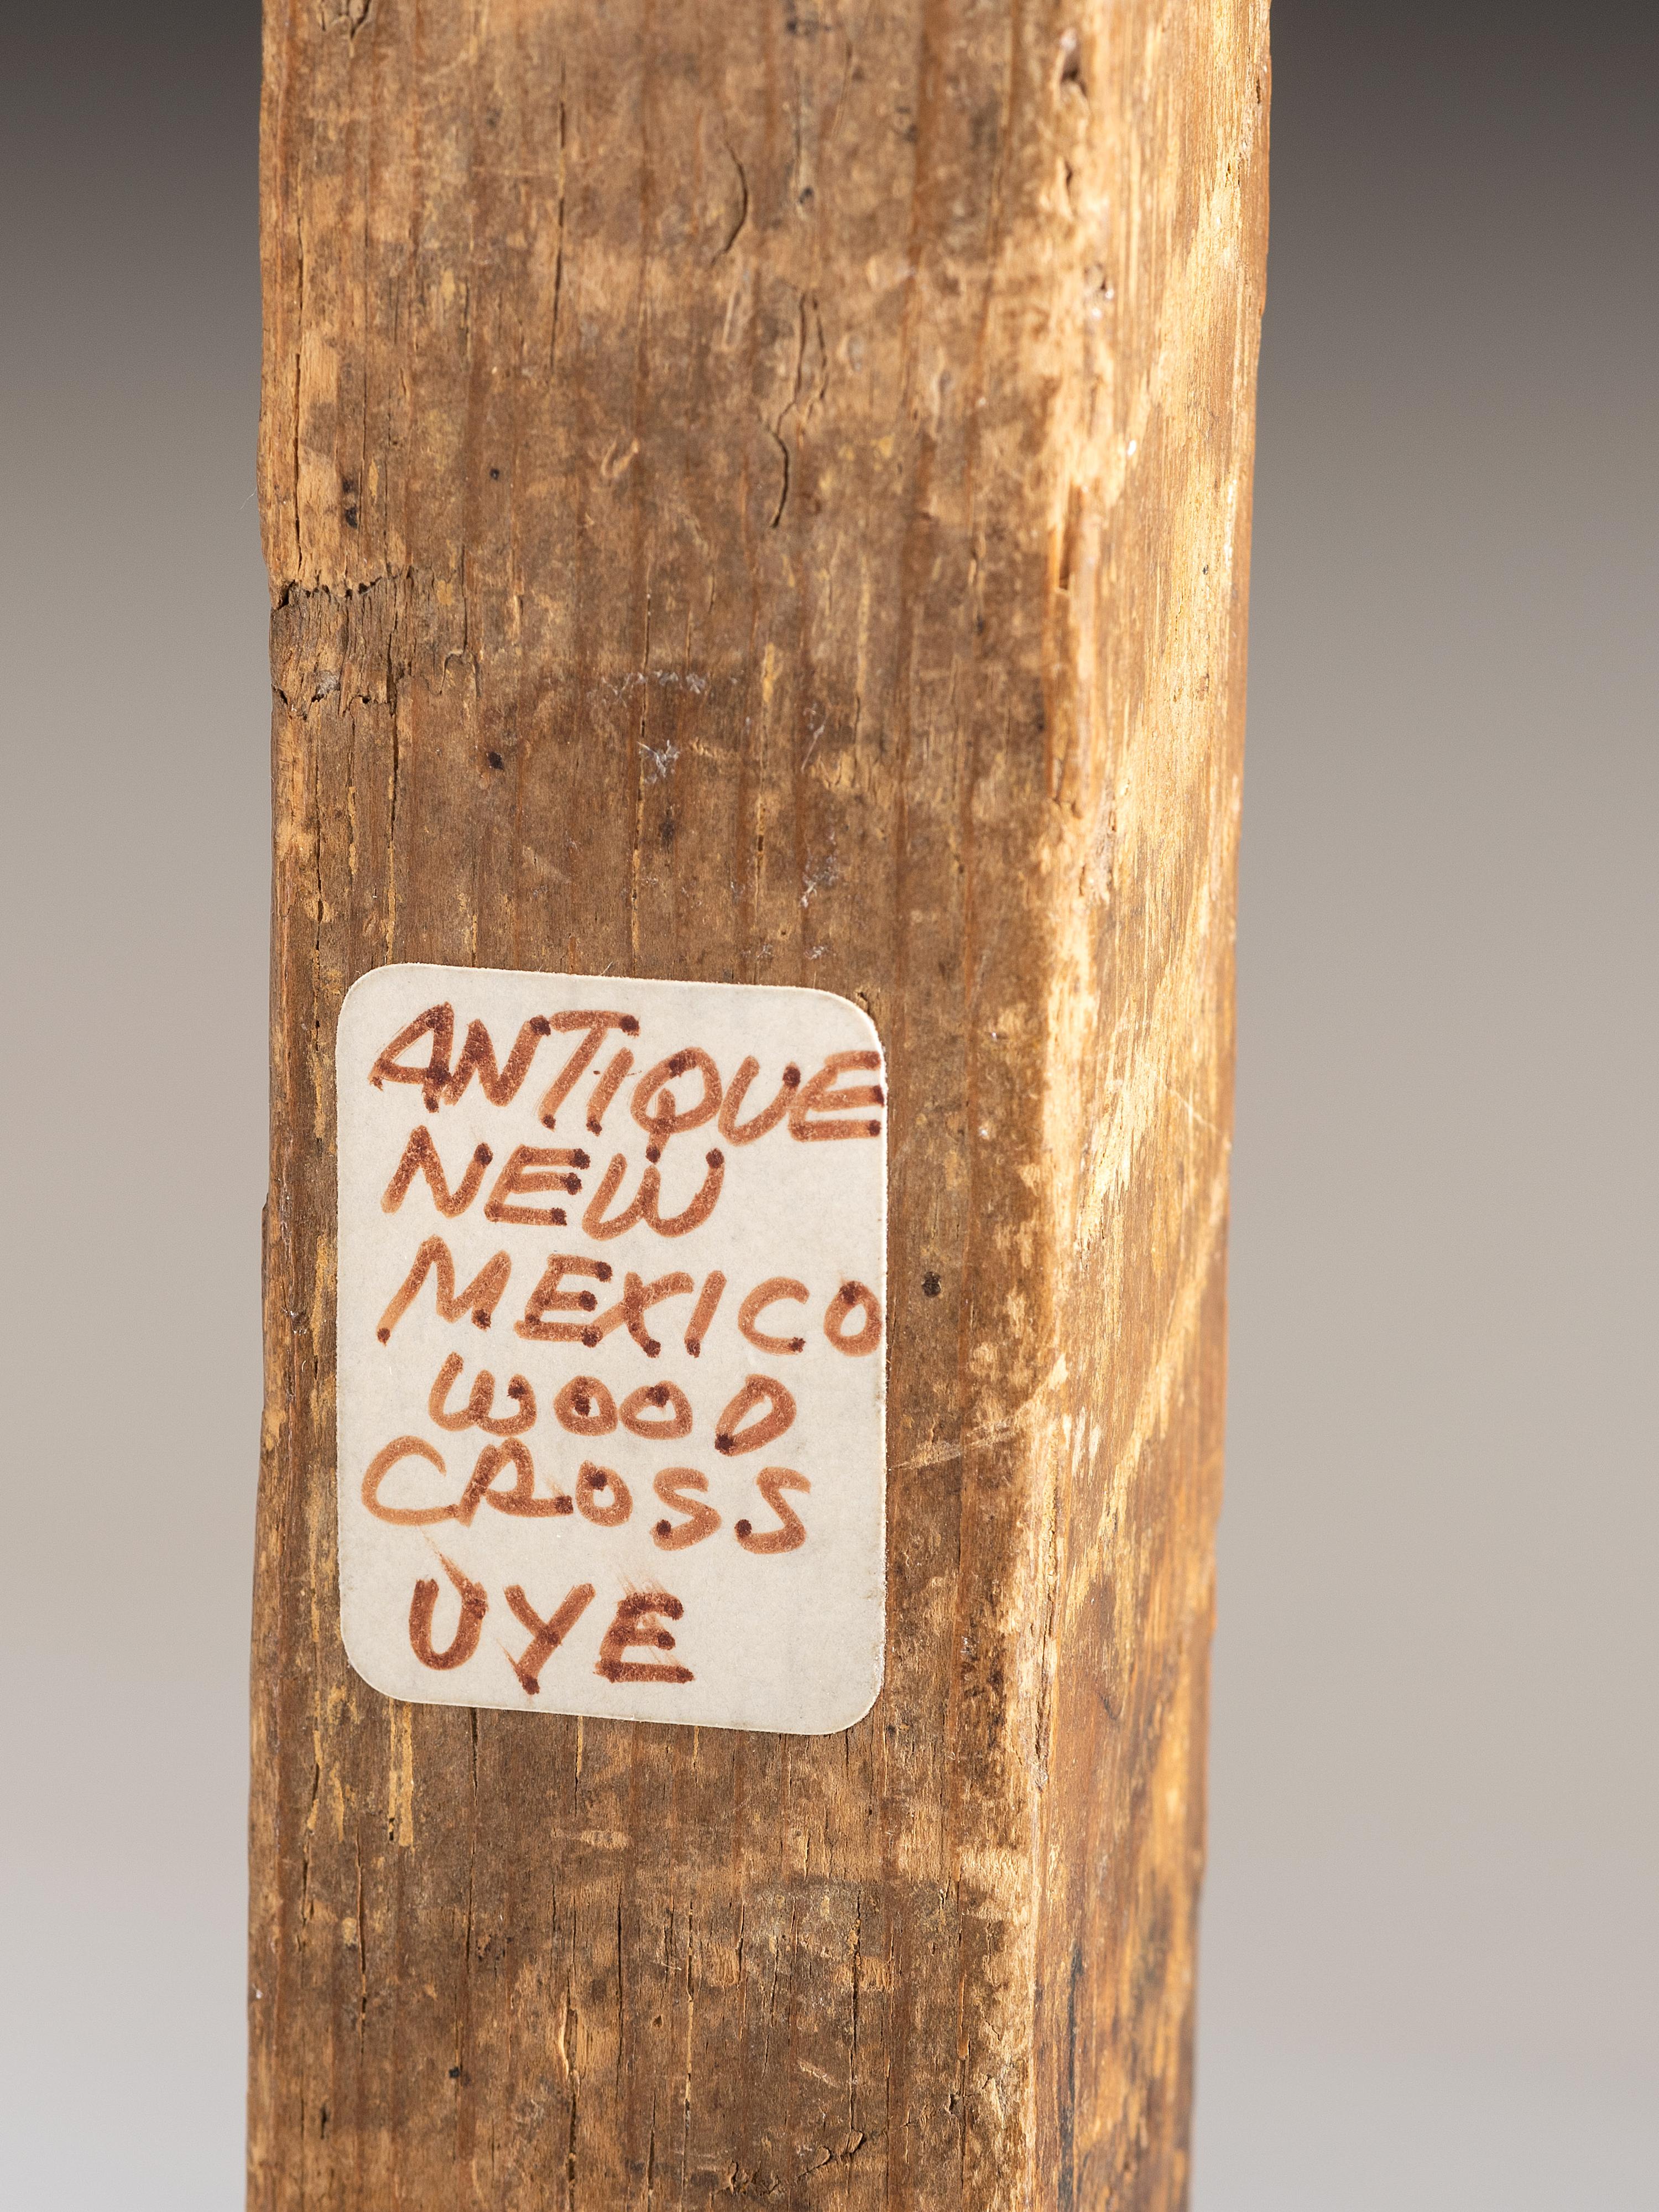 ANTIQUE
NEW
MEXICO
WOOD
CROSS
UYE